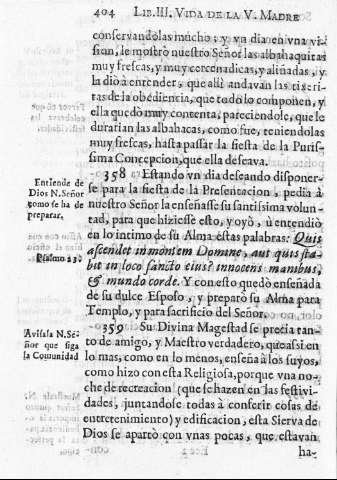 404 LIB.III. VIDA DE LA V. MADRE
conservandolas mucho; y vn dia en vna vi-
sion, le mostrò nuestro Señor las albahaquitas
muy frescas, y muy cercenadicas, y aliñadas, y
la diò à entender, que alli andavan las tiseri-
tas de la obediencia, que todo lo componen, y
ella quedò muy contenta, pareciendole, que le
durarian las albahacas, como fue, teniendolas
muy frescas, hasta passar la fiesta de la Puris-
sima Concepcion, que ella deseava.
358 Estando vn dia deseando disponer-
Entiende de
Dios N. Señor
como se ha de
preparar.
se para la fiesta de la Presentacion, pedia à
nuestro Señor la enseñasse su santissima volun-
tad, para que hiziesse esto, y oyò, ù entendiò
en lo intimo de su Alma estas palabras: Quis
Psalmo 23.
ascendet in montem Domine, aut quis sta-
bit in loco sancto eius? innocens manibus,
& mundo corde. Y con esto quedò enseñada
de su dulce Esposo, y preparò su Alma para
Templo, y para sacrificio del Señor.
359 Su Divina Magestad se precia tan-
Avisala N. Se-
ñor que siga
la Comunidad
to de amigo, y Maestro verdadero, que assi en
lo mas, como en lo menos, enseña à los suyos,
como hizo con esta Religiosa, porque vna no-
che de recreacion (que se hazen en las festivi-
dades, juntandose todas à conserir cosas de
entretenimiento) y edificacion, esta Sierva de
Dios se apartò con vnas pocas, que estavan
ha-